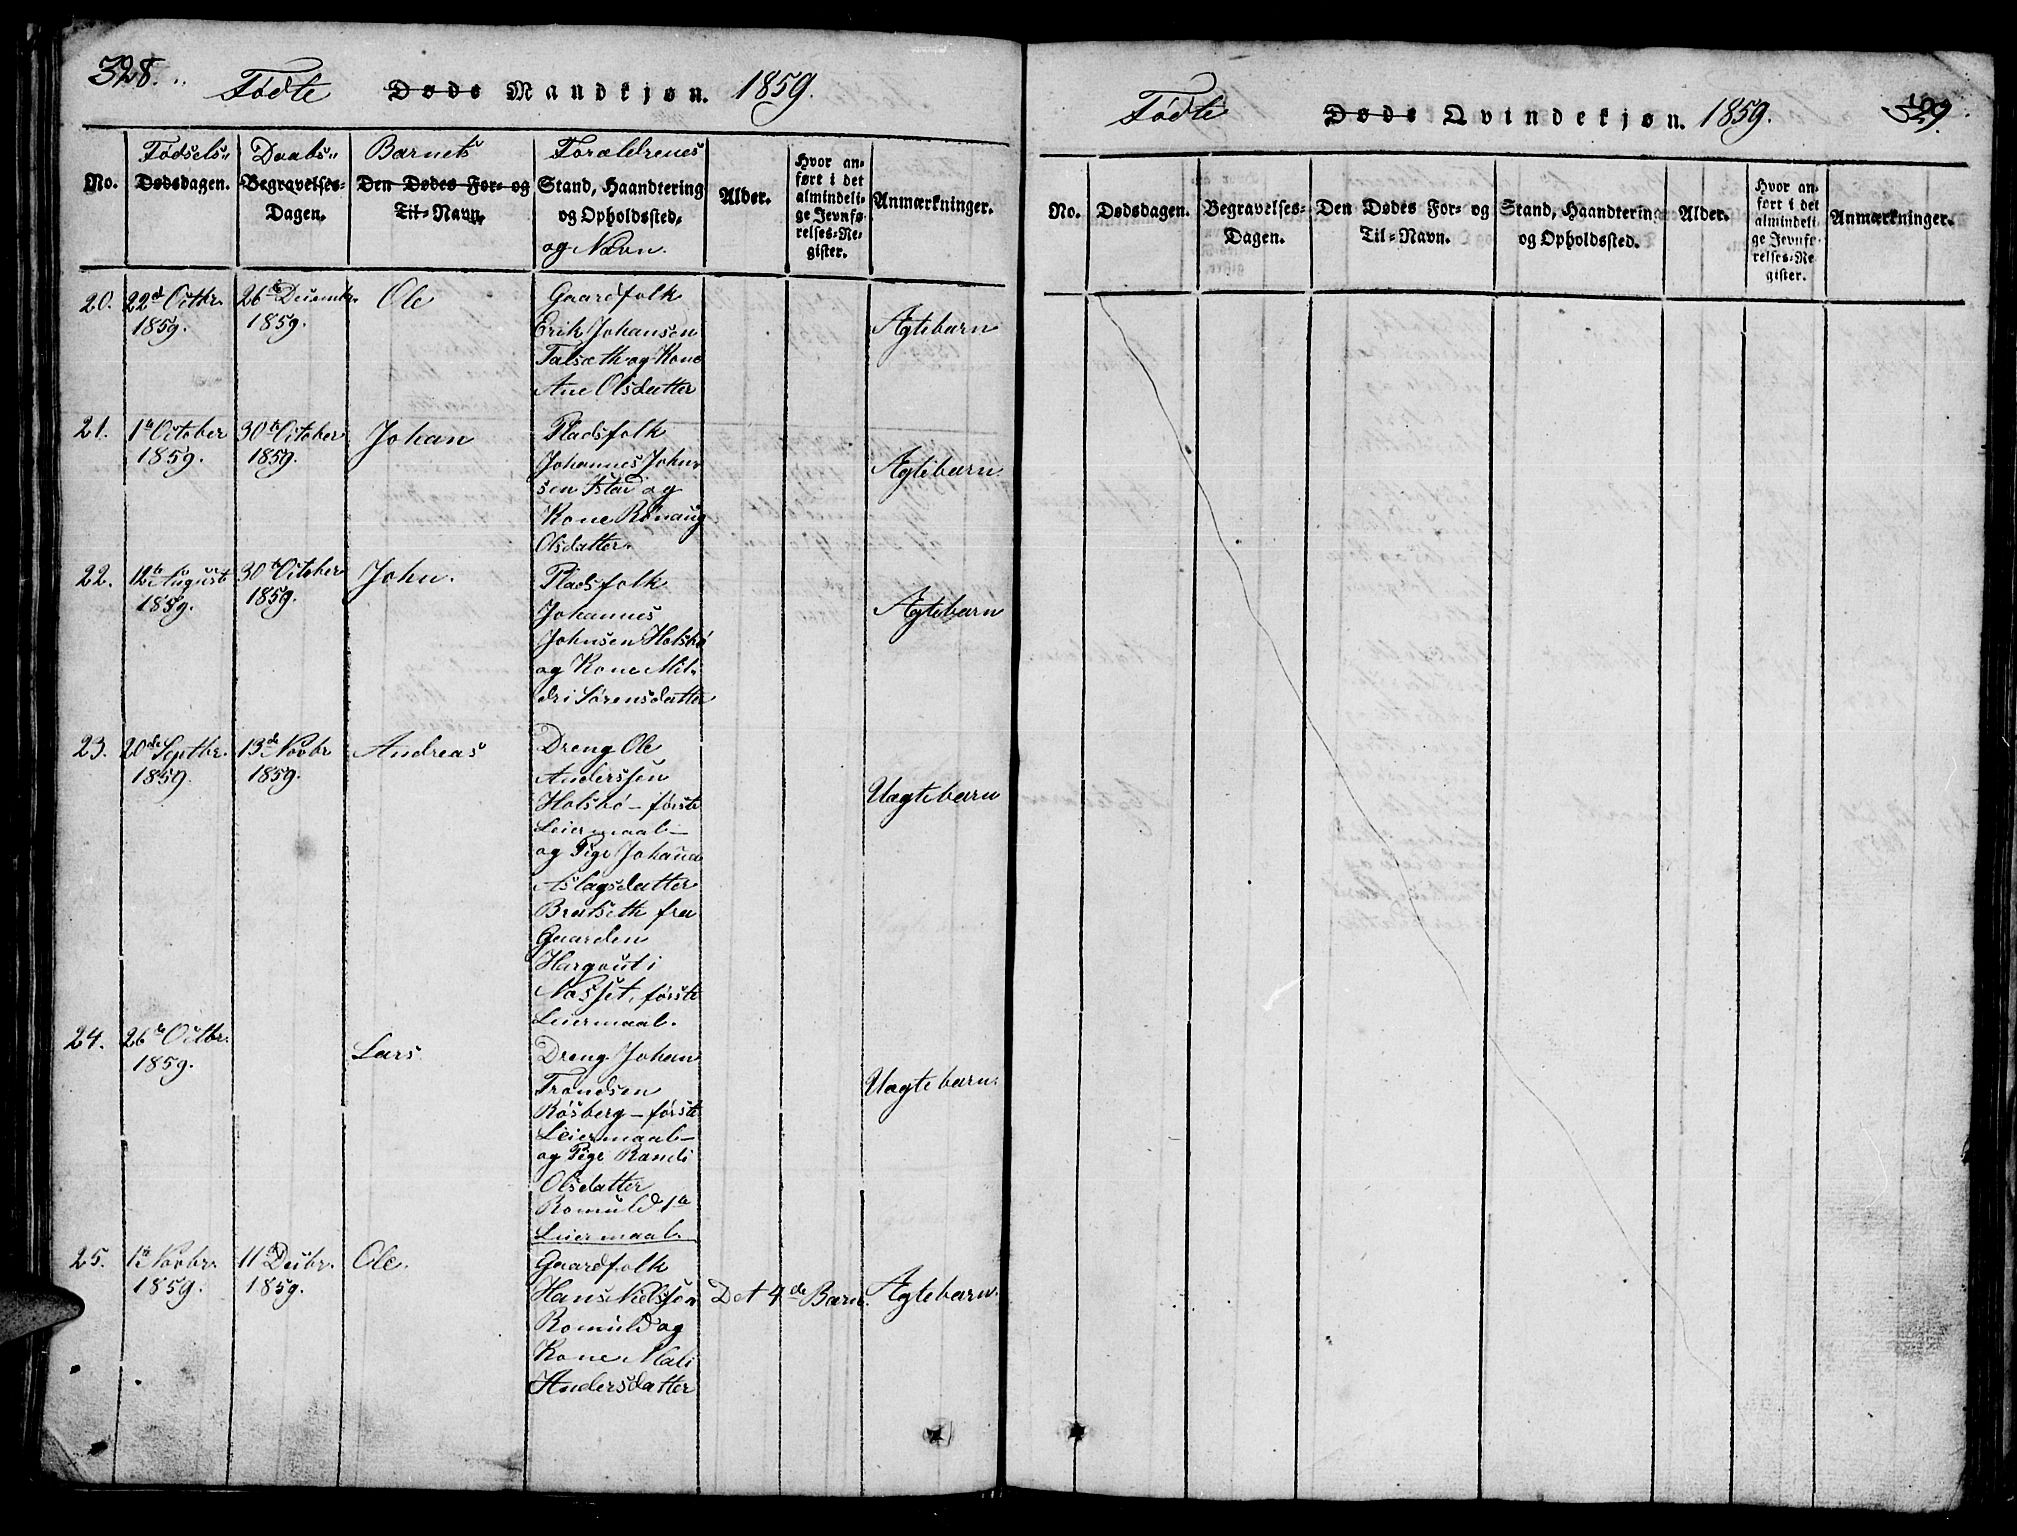 328.
Fødte Døde Mandkjøn. 1859.
Fødsels- Daabs- Barnets Forældrenes
No. Dødsdagen. Begravelses-Dagen. Den Dødes For- og Til-Navn. Stand, Haandtering og Opholdssted, og Navn. Alder. Hvor anført i det almindelige Jevnførelses-Register. Anmærkninger.
20. 22d Octbr. 26de Decembr. Ole Gaardfolk
1859. 1859. Erik Johansen Ægtebarn
Talsæth og Kone
Ane Olsdatter
21. 1te October 30te October Johan Pladsfolk
1859. 1859. Johannes John-
sen Istad og Ægtebarn
Kone Rønaug
Olsdatter.
22. 12te August 30te October John. Pladsfolk
1859. 1859. Johannes Ægtebarn
Johnsen Holsbø
og Kone Mil-
dri Sørensdatter
23. 20de Septbr. 13de Novbr Andreas Dreng Ole
1859. 1859. Anderssen
Holsbø - første Uægtebarn
Leiermaal -
og Pige Johana
Aslagsdatter
Bratseth fra
Gaarden
Hargout i
Næsset, første
Leiermaal.
24. 26de Octbr. Lars Dreng Johan
1859. Trondsen Uægtebarn.
Røsberg - første
Leiermaal -
og Pige Randi
Olsdatter
Romuld 1te
Leiermaal.
25. 1te Novbr. 11te Decbr. Ole. Gaardfolk
1859. 1859. Hans Nielssen Det 4de Barn. Ægtebarn.
Romuld og
Kone Mali
Andersdatter
329.
Fødte Døde Qvindekjøn. 1859.
No. Dødsdagen. Begravelses-Dagen. Den Dødes For- og Til-Navn. Stand, Haandtering og Opholdssted. Alder. Hvor anført i det almindelige Jevnførelses-Register. Anmærkninger.